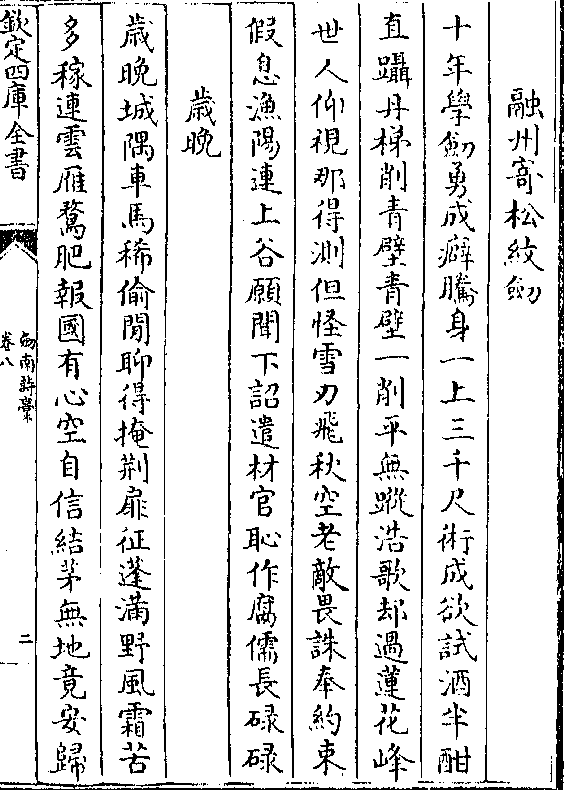 融州寄松紋劒
十年學劒勇成癖騰身一上三千尺術成欲試酒半酣
直躡丹梯削青壁青壁一削平無蹤浩歌却過蓮花峰
世人仰視那得測但怪雪刃飛秋空老敵畏誅奉約束
假息漁陽連上谷願聞下詔遣材官恥作腐儒長碌碌
歳晩
歳晩城隅車馬稀偷閒聊得掩荆扉征蓬滿野風霜苦
多稼連雲雁鶩肥報國有心空自信結茅無地竟安歸
欽定四庫全書
劒南詩藳
卷八
二